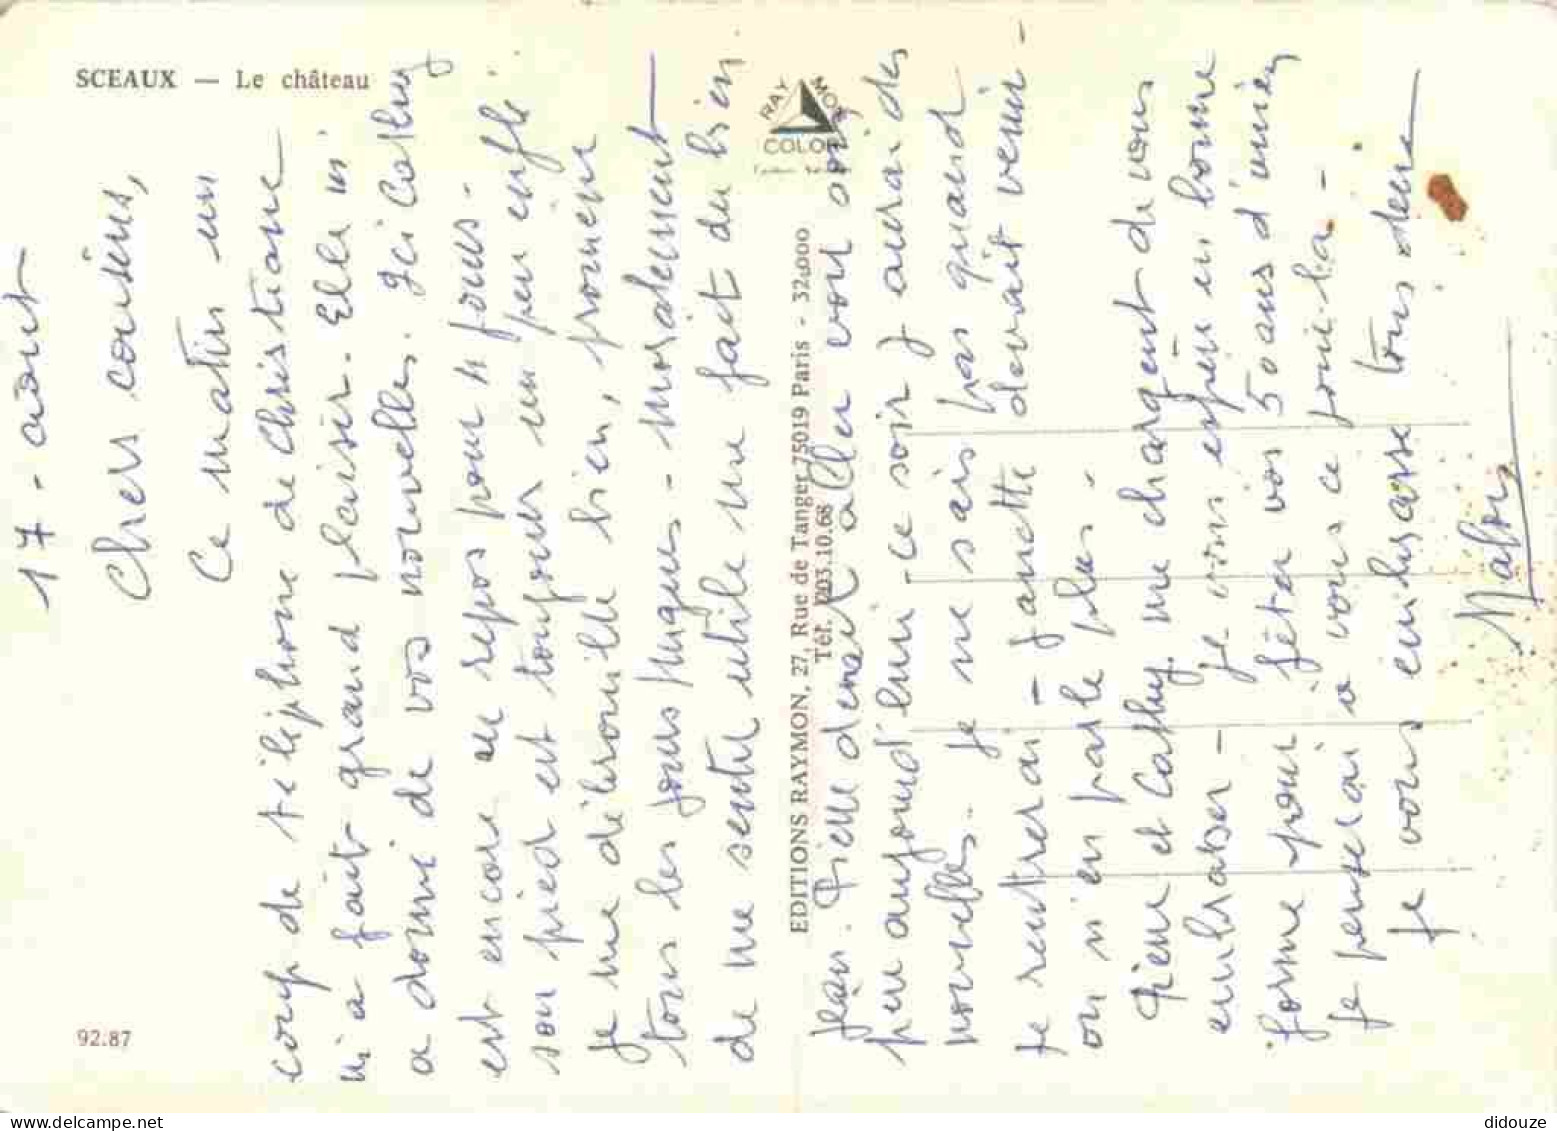 SCEAUX — Le château
RAYMON
COLOR
92.87
EDITIONS RAYMON, 27, Rue de Tanger 75019 Paris - 32.000
Tél. 203.10.68
17 - août
Chers cousins,
Ce matin un
coup de téléphone de Christiane
m'a fait grand plaisir. Elle m'
a donné de vos nouvelles. Ici Cathy
est encore au repos pour 4 jours -
son pied est toujours un peu enflé.
Je me débrouille bien, promène
tous les jours Hugues - moralement
de me sentir utile me fait du bien.
Jean-Pierre devait aller vous voir
peu aujourd'hui - ce soir j'aurai des
nouvelles. Je ne sais pas quand
je rentrerai - Janette devait venir -
on n'en parle plus -
Pierre et Cathy me chargent de vous
embrasser - Je vous espère en bonne
forme pour fêter vos 50 ans d'union
Je penserai à vous ce jour-là -
Je vous embrasse tous deux